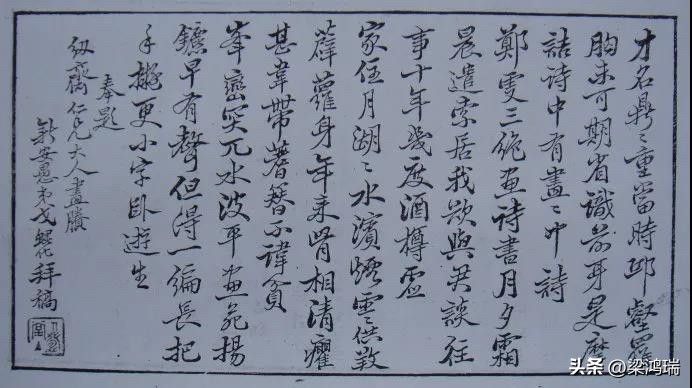 才名鼎々重當時邱壑羅
胸未可期省識前身是摩
詰詩中有畫々中詩
鄭虔三絶画詩書月夕霜
晨遣索居我欲與君談往
事十年幾度酒樽虛
家住月湖々水濱煙雲供養
薜蘿身年來骨相清癯
甚韋帶蓍簪不諱貧
峯巒突兀水波平画苑揚
鑣早有聲但得一編長把
手擬更小字臥遊生
奉題
仁兄大人畫牘
新安愚弟戈鯤化拜稿
头条 @梁鸿瑞